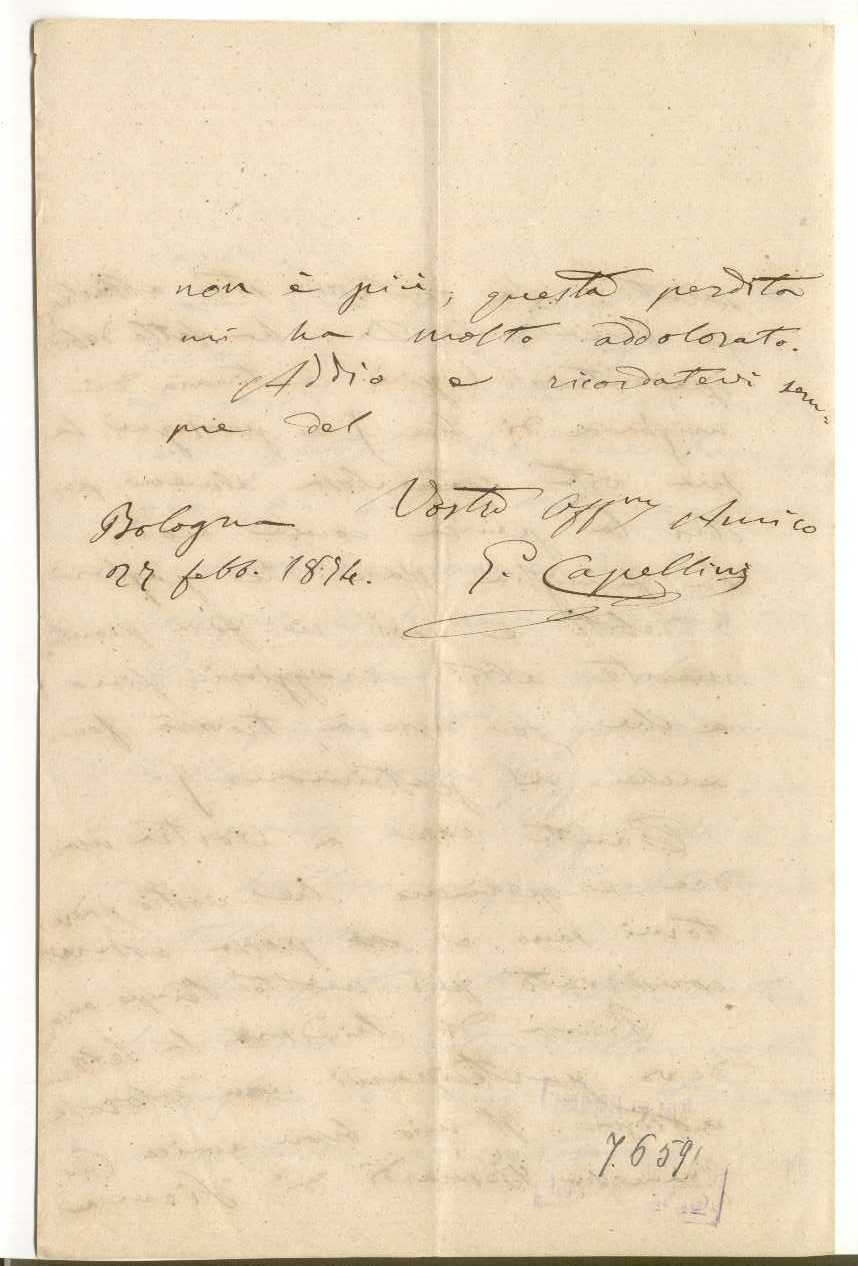 non è più, questa perdita
mi ha molto addolorato.
Addio e ricordatevi sem-
pre del
Vostro Affmo Amico
G. Capellini
Bologna
27 febb. 1874.
7659